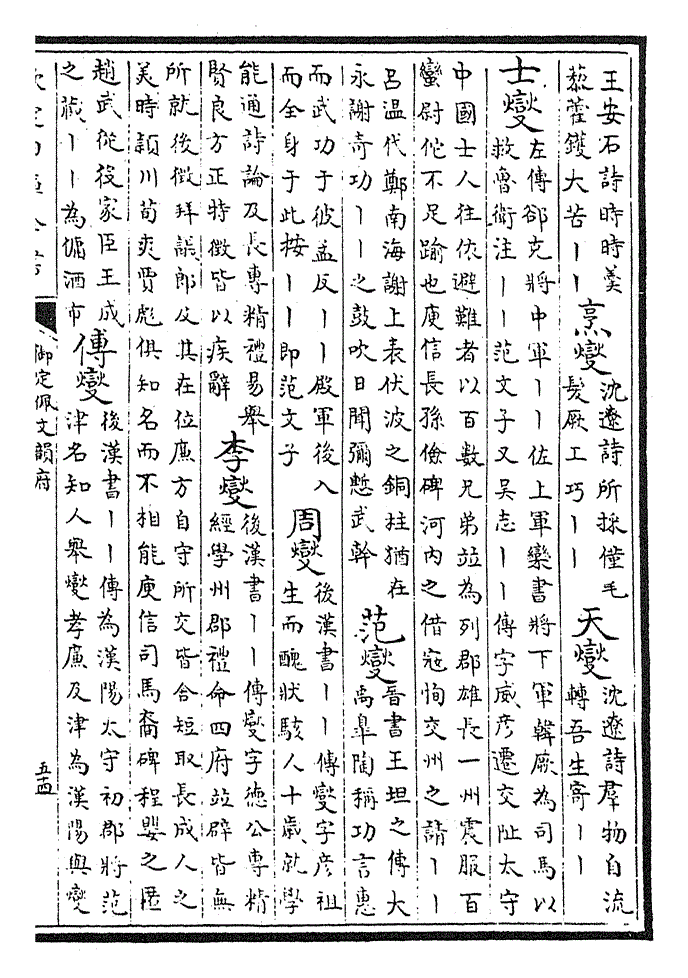 王安石詩時時羮
藜藿鑊大苦丨丨
烹燮
沈遼詩所採僅毛
髮厥工巧丨丨
天燮
沈遼詩羣物自流
轉吾生寄丨丨
士燮
左傳郤克將中軍丨丨佐上軍欒書將下軍韓厥為司馬以
救魯衛注丨丨范文子又吳志丨丨傳字威彥遷交阯太守
中國士人往依避難者以百數兄弟竝為列郡雄長一州震服百
蠻尉佗不足踰也庾信長孫儉碑河內之借寇恂交州之請丨丨
呂温代鄭南海謝上表伏波之銅柱猶在
永謝奇功丨丨之鼓吹日聞彌慙武幹
范燮
晉書王坦之傳大
禹臯陶稱功言惠
而武功于彼孟反丨丨殿軍後入
而全身于此按丨丨即范文子
周燮
後漢書丨丨傳燮字彥祖
生而醜狀駭人十歲就學
能通詩論及長專精禮易舉
賢良方正特徵皆以疾辭
李燮
後漢書丨丨傳燮字德公專精
經學州郡禮命四府竝辟皆無
所就後徵拜議郎及其在位廉方自守所交皆舍短取長成人之
美時潁川荀爽賈彪俱知名而不相能庾信司馬裔碑程嬰之匿
趙武從後家臣王成
之藏丨丨為傭酒市
傅燮
後漢書丨丨傳為漢陽太守初郡將范
津名知人舉燮孝廉及津為漢陽與燮
欽定四庫全書
御定佩文韻府
五十四